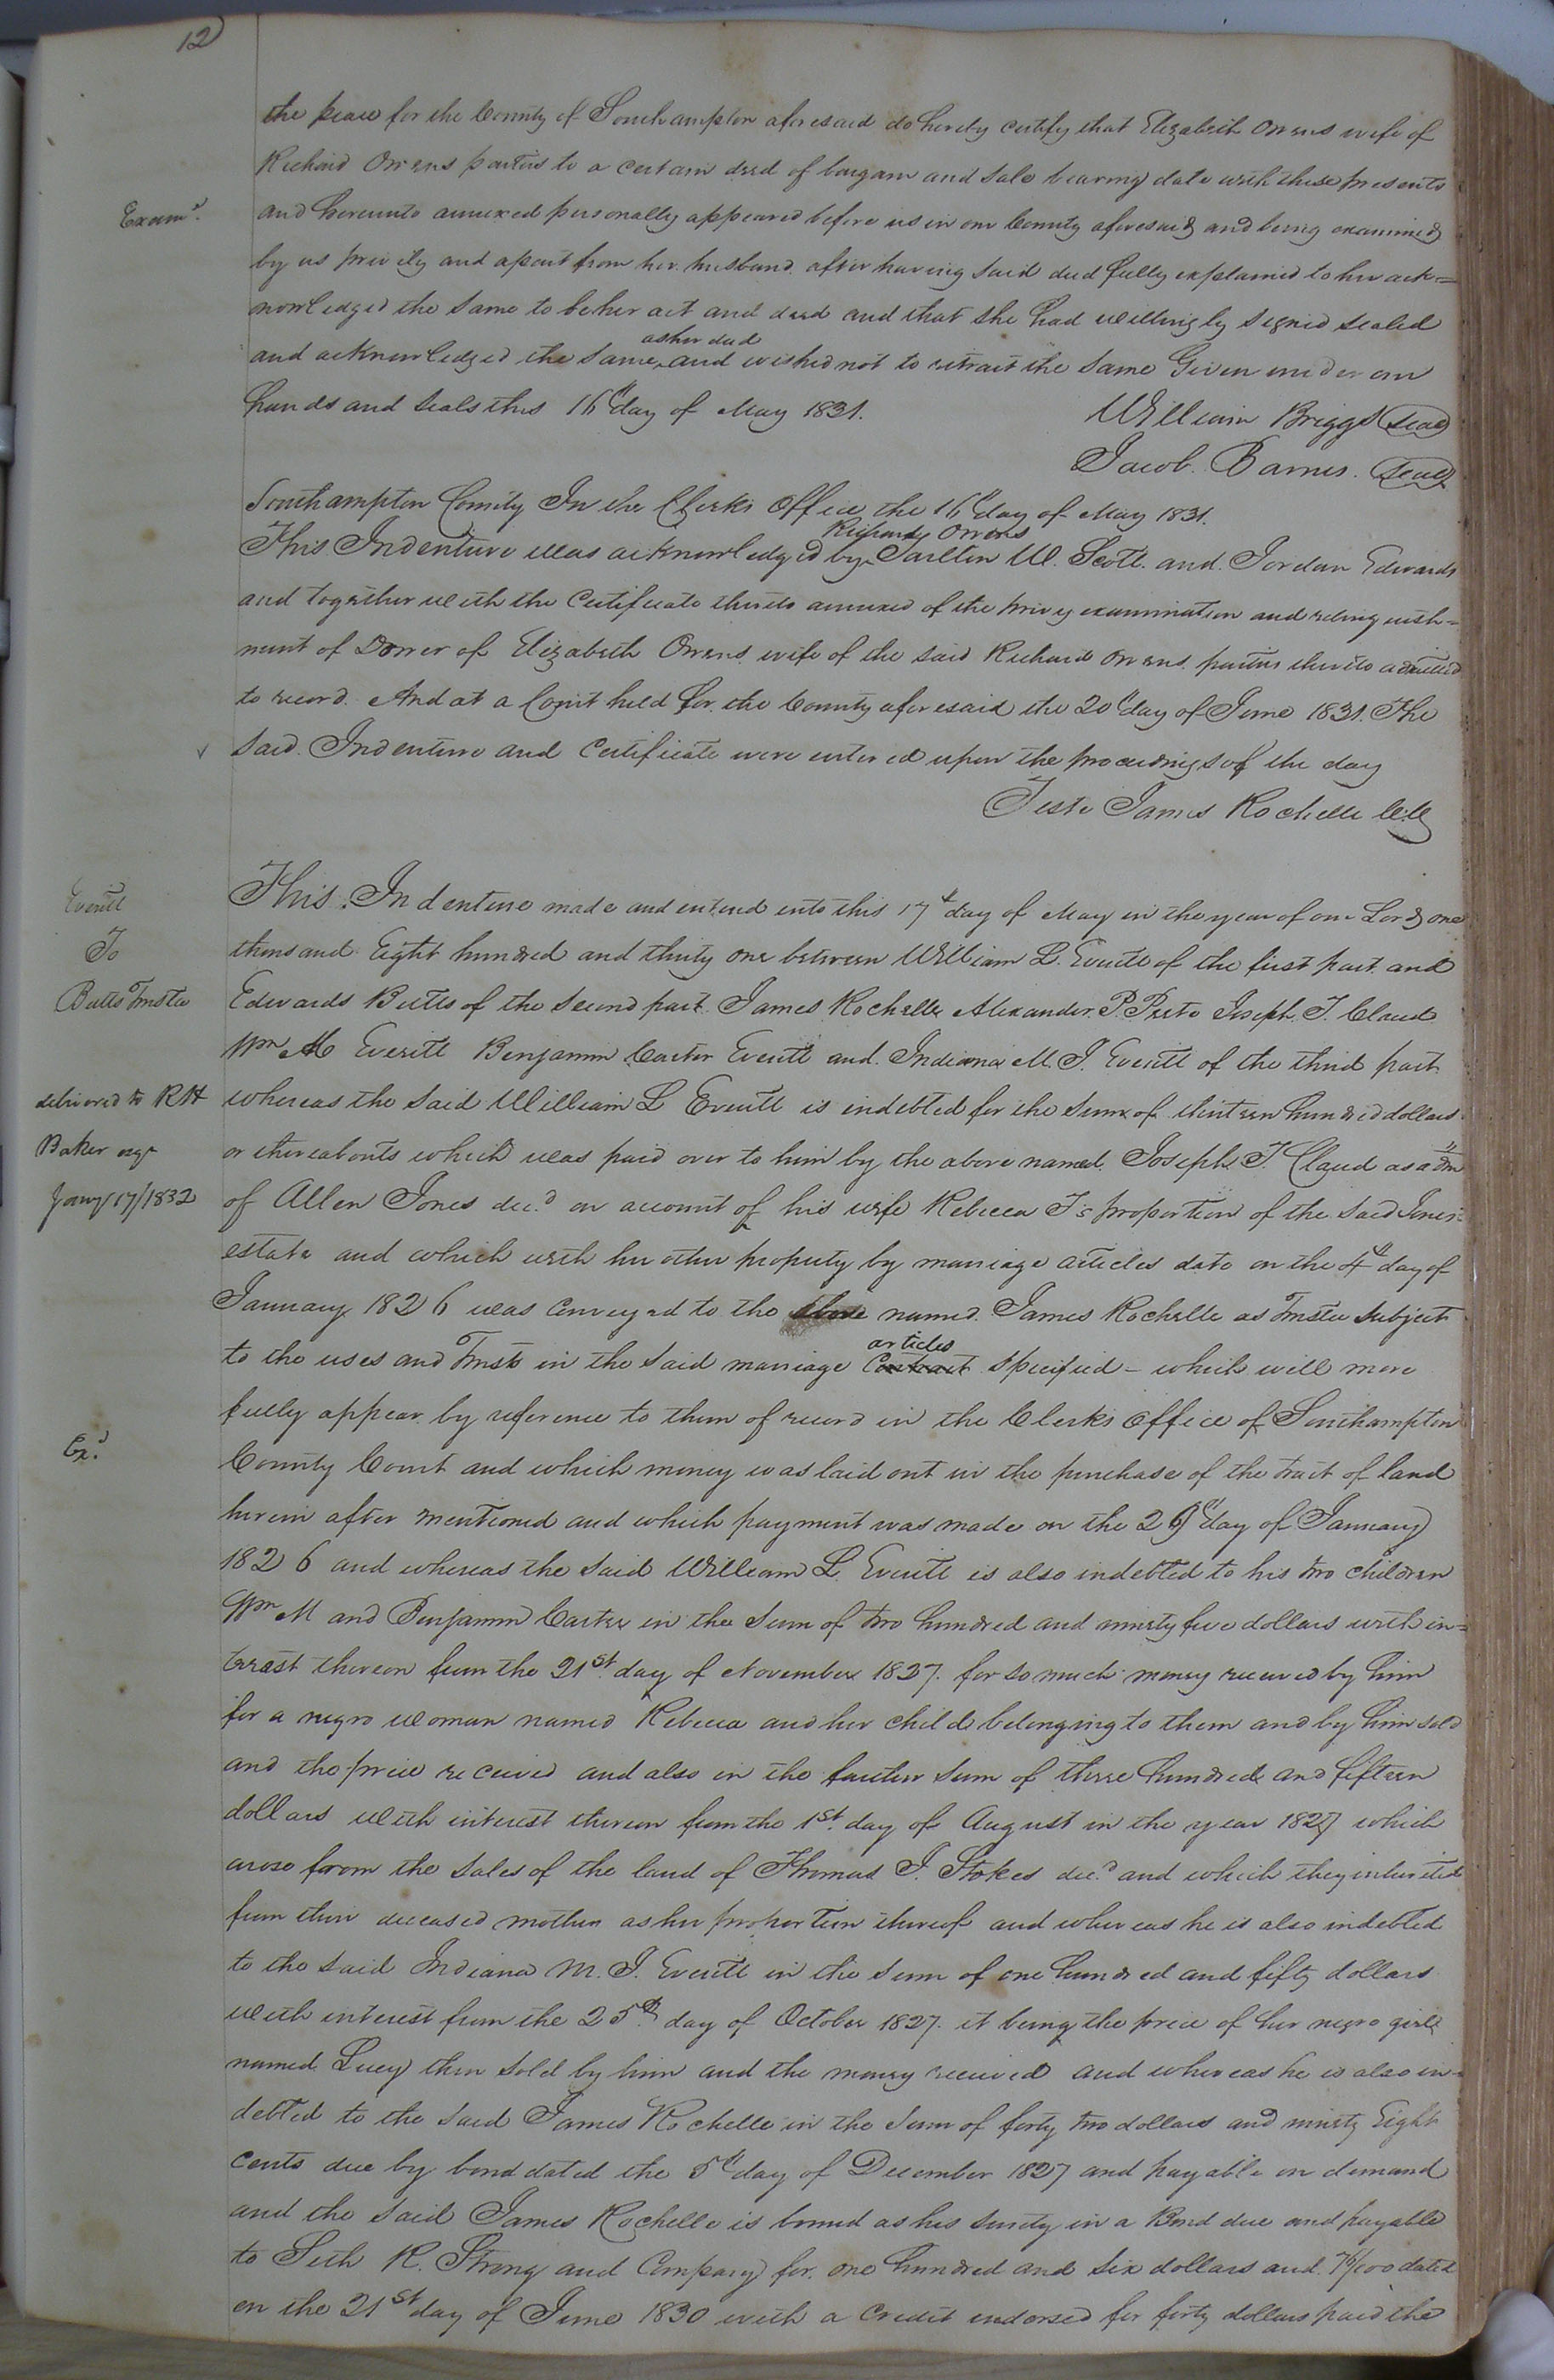 12
the peace for the County of Southampton aforesaid do hereby certify that Elizabeth Owens wife of
Richard Owens parties to a certain deed of bargain and sale bearing date with these presents
Examd.
and hereunto annexed personally appeared before us in our County aforesaid and being examined
by us privily and apart from her husband after having said deed fully explained to her ack=
nowledged the same to be her act and deed and that she had willingly signed sealed
as her deed
and acknowledged the same and wished not to retract the same Given under our
hands and seals this 16th day of May 1831.
William Briggs Seal
Jacob. Barnes. Seal
Southampton County In the Clerks Office the 16th day of May 1831.
Richard Owens
This Indenture was acknowledged by Carlton W. Scott. and. Jordan Edwards
and together with the Certificate thereto annexed of the privy examination and relinquish=
ment of Dower of Elizabeth Owens wife of the said Richard Owens parties thereto admitted
to record. And at a Court held for the County aforesaid the 20th day of June 1831. The
said. Indenture and Certificate were entered upon the proceedings of the day
Teste James Rochelle C.C
Everitt
To
Butts Trustee
delivered to RH
Baker agt
Jany 17/1832
This Indenture made and entered into this 17th day of May in the year of our Lord one
thousand Eight hundred and thirty one between William L. Everitt of the first part and
Edwards Butts of the second part James Rochelle Alexander. P. Peete Joseph. T. Claud
Wm M Everitt Benjamin Carter Everitt and. Indiana M. J. Everitt of the third part
whereas the said William L Everitt is indebted for the sum of thirteen hundred dollars
or thereabouts which was paid over to him by the above named. Joseph. T. Claud as adm
of Allen Jones decd on account of his wife Rebecca J's proportion of the said Jones's
estate and which with her other property by marriage articles date on the 4th day of
January 1826 was conveyed to the above named. James Rochelle as Trustee subject
articles
to the uses and Trusts in the said marriage Contract specified - which will more
fully appear by reference to them of record in the Clerks Office of Southampton
Exd.
County Court and which money was laid out in the purchase of the tract of land
herein after mentioned and which payment was made on the 26th day of January
1826 and whereas the said William L. Everitt is also indebted to his two children
Wm M and Benjamin Carter in the sum of two hundred and ninety five dollars with in=
terest thereon from the 21st day of November 1827. for so much money received by him
for a negro woman named Rebecca and her child belonging to them and by him sold
and the price received and also in the further sum of three hundred and fifteen
dollars with interest thereon from the 1st. day of August in the year 1827 which
arose from the sales of the land of Thomas J. Stokes decd and which they inherited
from their deceased mother as her proportion thereof and whereas he is also indebted
to the said Indiana M. J. Everitt in the sum of one hundred and fifty dollars
with interest from the 25th day of October 1827. it being the price of her negro girl
named Lucy then sold by him and the money received and whereas he is also in-
debted to the said James Rochelle in the sum of forty two dollars and ninety Eight
cents due by bond dated the 5th day of December 1827 and payable on demand
and the said James Rochelle is bound as his surety in a Bond due and payable
to Seth R. Strong and Company for. one hundred and six dollars and /100 dated
on the 21st day of June 1830 with a credit endorsed for forty dollars paid the